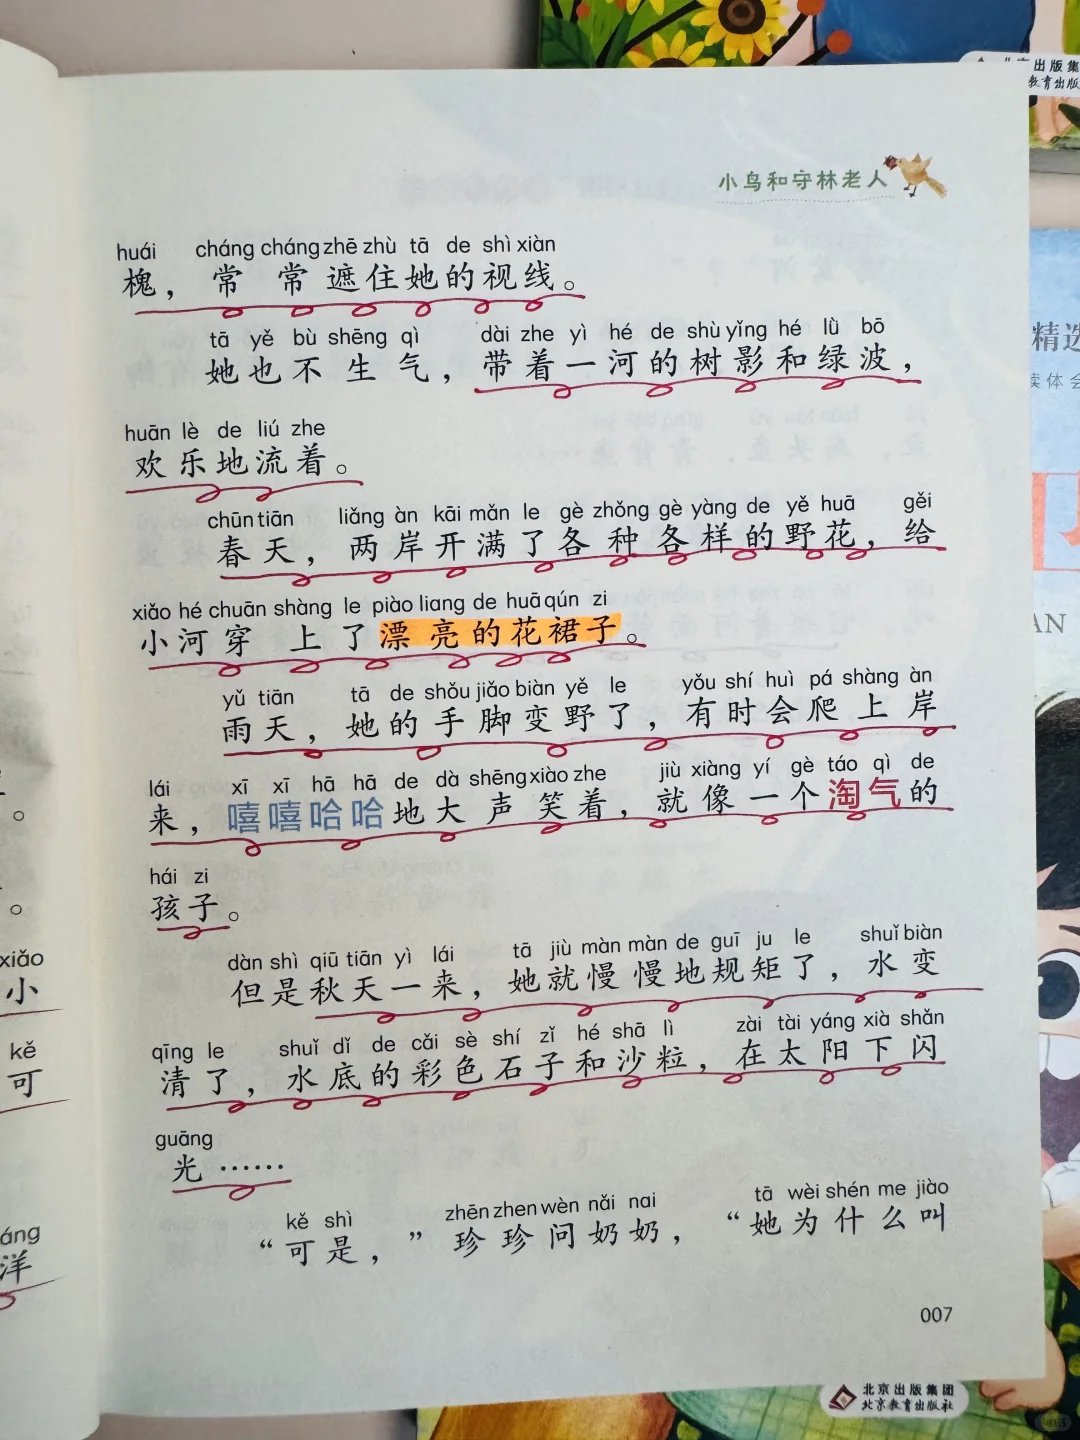 小鸟和守林老人
huái cháng cháng zhē zhù tā de shì xiàn
槐，常常遮住她的视线。
tā yě bù shēng qì dài zhe yì hé de shù yǐng hé lǜ bō
她也不生气，带着一河的树影和绿波，
huān lè de liú zhe
欢乐地流着。
chūn tiān liǎng àn kāi mǎn le gè zhǒng gè yàng de yě huā gěi
春天，两岸开满了各种各样的野花，给
xiǎo hé chuān shàng le piào liang de huā qún zi
小河穿上了漂亮的花裙子。
yǔ tiān tā de shǒu jiǎo biàn yě le yǒu shí huì pá shàng àn
雨天，她的手脚变野了，有时会爬上岸
lái xī xī hā hā de dà shēng xiào zhe jiù xiàng yí gè táo qì de
来，嘻嘻哈哈地大声笑着，就像一个淘气的
hái zi
孩子。
dàn shì qiū tiān yì lái tā jiù màn màn de guī ju le shuǐ biàn
但是秋天一来，她就慢慢地规矩了，水变
qīng le shuǐ dǐ de cǎi sè shí zǐ hé shā lì zài tài yáng xià shǎn
清了，水底的彩色石子和沙粒，在太阳下闪
guāng
光……
kě shì zhēn zhen wèn nǎi nai tā wèi shén me jiào
“可是，”珍珍问奶奶，“她为什么叫
007
xiǎo
小
kě
可
áng
洋
北京出版集团
北京教育出版社
精选
AN